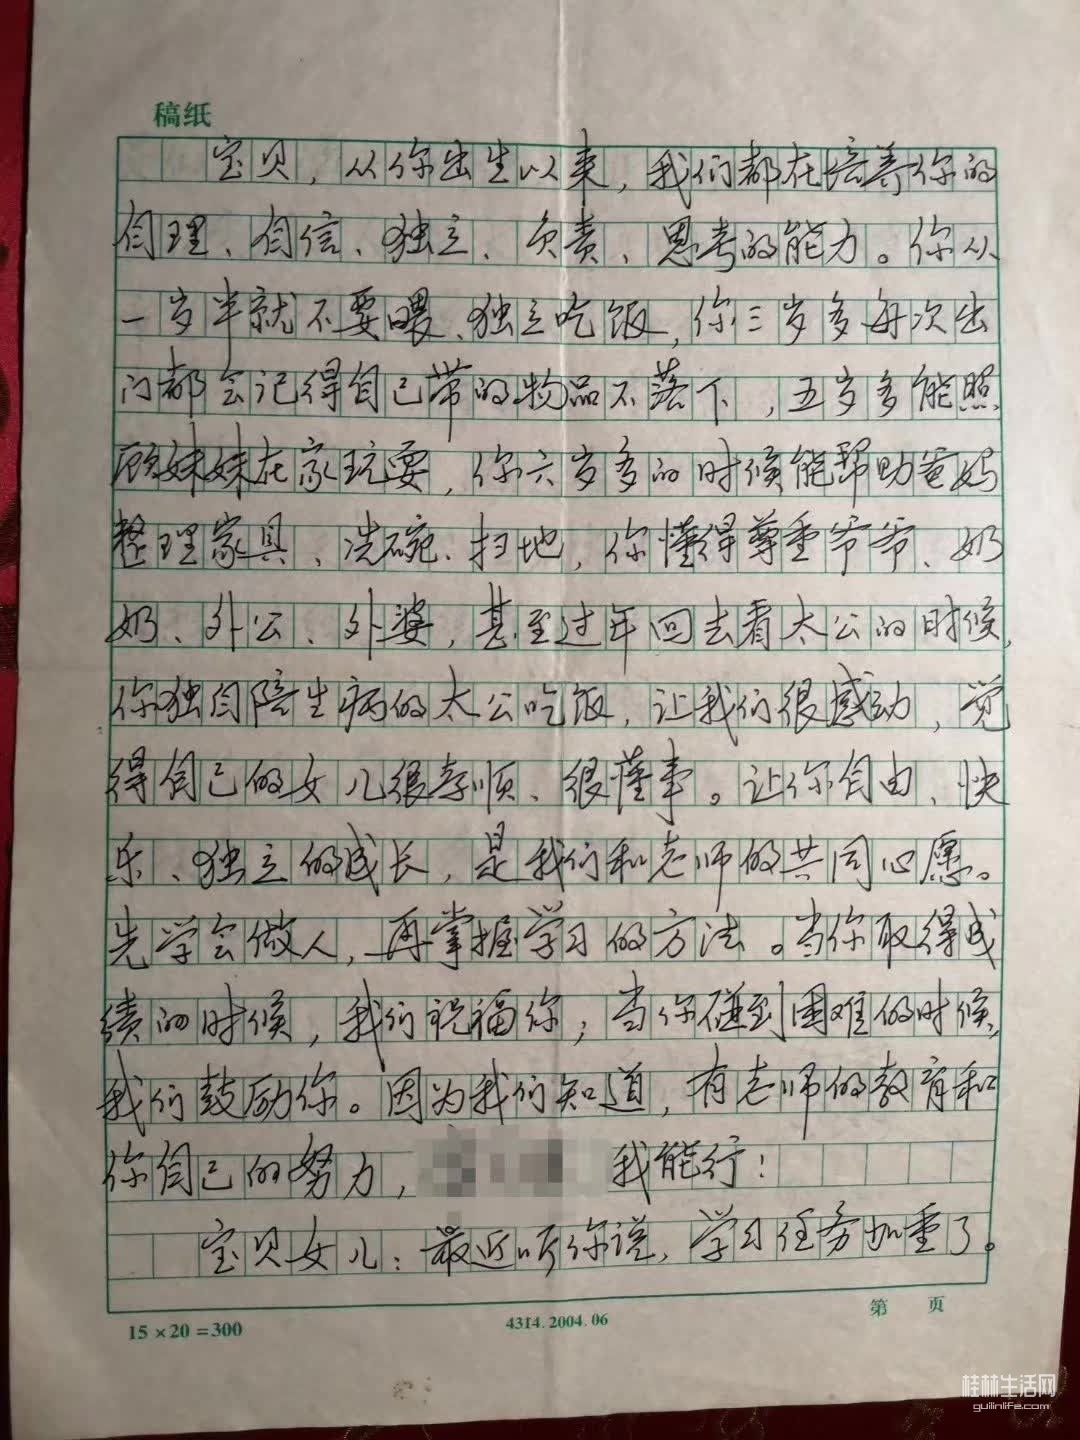 稿纸
宝贝，从你出生以来，我们都在培养你的
自理、自信、独立、负责、思考的能力。你从
一岁半就不要喂、独立吃饭，你三岁多每次出
门都会记得自己带的物品不落下，五岁多能照
顾妹妹在家玩耍，你六岁多的时候能帮助爸妈
整理家具、洗碗、扫地，你懂得尊重爷爷、奶
奶、外公、外婆，甚至过年回去看太公的时候，
你独自陪生病的太公吃饭，让我们很感动，觉
得自己的女儿很孝顺、很懂事。让你自由、快
乐、独立的成长，是我们和老师的共同心愿。
先学会做人，再掌握学习的方法。当你取得成
绩的时候，我们祝福你；当你碰到困难的时候，
我们鼓励你。因为我们知道，有老师的教育和
你自己的努力，我能行！
宝贝女儿：最近听你说，学习任务加重了。
15×20=300
4314.2004.06
第 页
桂林生活网
guilinlife.com